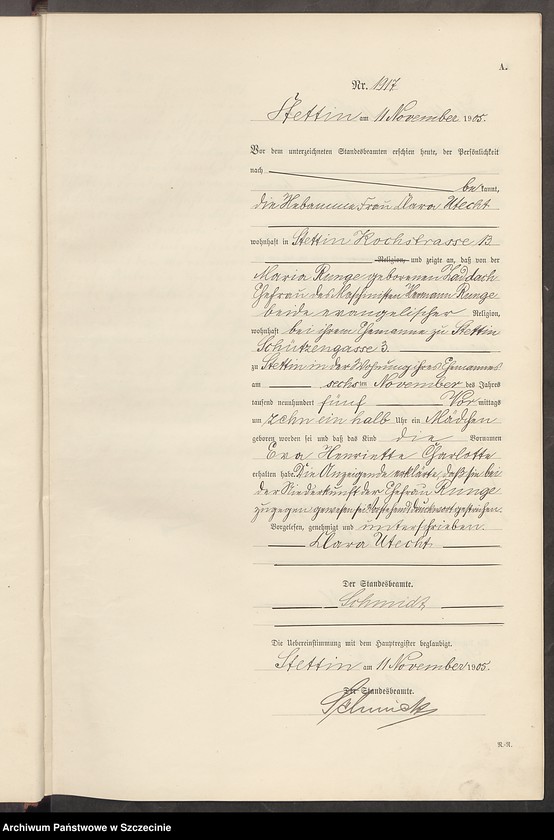 A.
Nr. 1917
Stettin am 11 November 1905.
Vor dem unterzeichneten Standesbeamten erschien heute, der Persönlichkeit
nach
be kannt,
die Hebamme Frau Clara Utecht
wohnhaft in Stettin Kochstrasse 13
Religion, und zeigte an, daß von der
Maria Runge geborenen Haddach
Ehefrau des Maschinisten Hermann Runge
beide evangelischer Religion,
wohnhaft bei ihrem Ehemanne zu Stettin
Schützengasse 3.
zu Stettin in der Wohnung ihres Ehemannes
am sechsten November des Jahres
tausend neunhundert fünf Vor mittags
um zehn ein halb Uhr ein Mädchen
geboren worden sei und daß das Kind die Vornamen
Eva Henriette Charlotte
erhalten habe. Die Anzeigende erklärte, daß sie bei
der Niederkunft der Ehefrau Runge
zugegen gewesen sei. Vorstehend Druckwort gestrichen.
Vorgelesen, genehmigt und unterschrieben.
Klara Utecht
Der Standesbeamte.
Schmidt
Die Uebereinstimmung mit dem Hauptregister beglaubigt.
Stettin am 11 November 1905.
Der Standesbeamte.
Schmidt
R.-R.
Archiwum Państwowe w Szczecinie